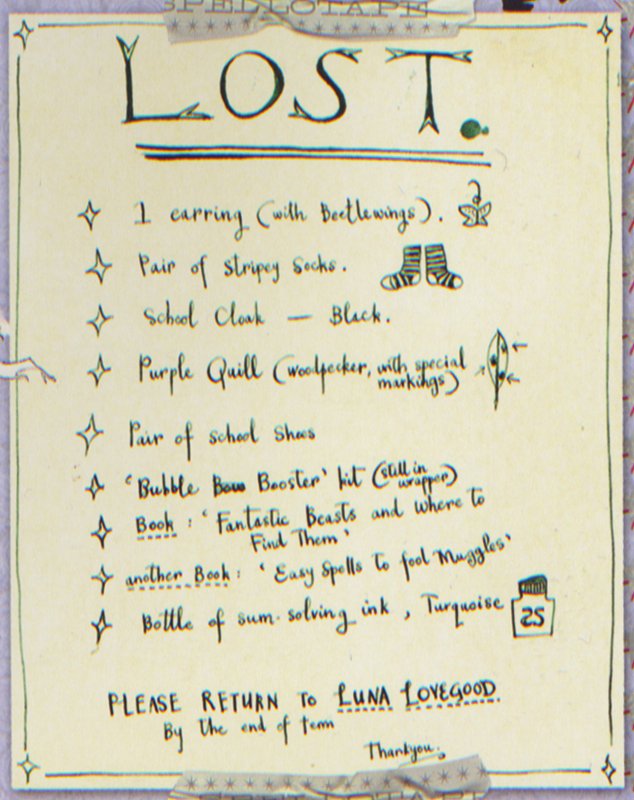 SPELLOTAPE
LOST.
1 earring (with Beetlewings).
Pair of stripey Socks.
School Cloak — Black.
Purple Quill (woodpecker, with special
markings)
Pair of school shoes
'Bubble Booster' kit (still in
wrapper)
Book : 'Fantastic Beasts and where to
Find Them'
another Book : 'Easy Spells to fool Muggles'
Bottle of sum-solving ink, Turquoise
2S
PLEASE RETURN TO LUNA LOVEGOOD
By the end of term
Thankyou.
SPELLOTAPE